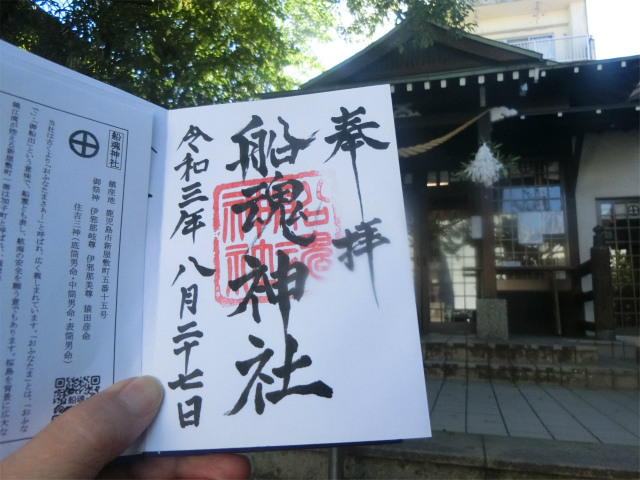 奉拝
船魂神社
令和三年八月二十七日
船魂神社
船魂神社
鎮座地 鹿児島市新屋敷町五番十五号
御祭神 伊邪那岐尊 伊邪那美尊 猿田彦命
住吉三神(底筒男命・中筒男命・表筒男命)
当社は古くより「おふなたまさぁ」と呼ばれ、広く親しまれています。「おふなたま」とは、「おふな